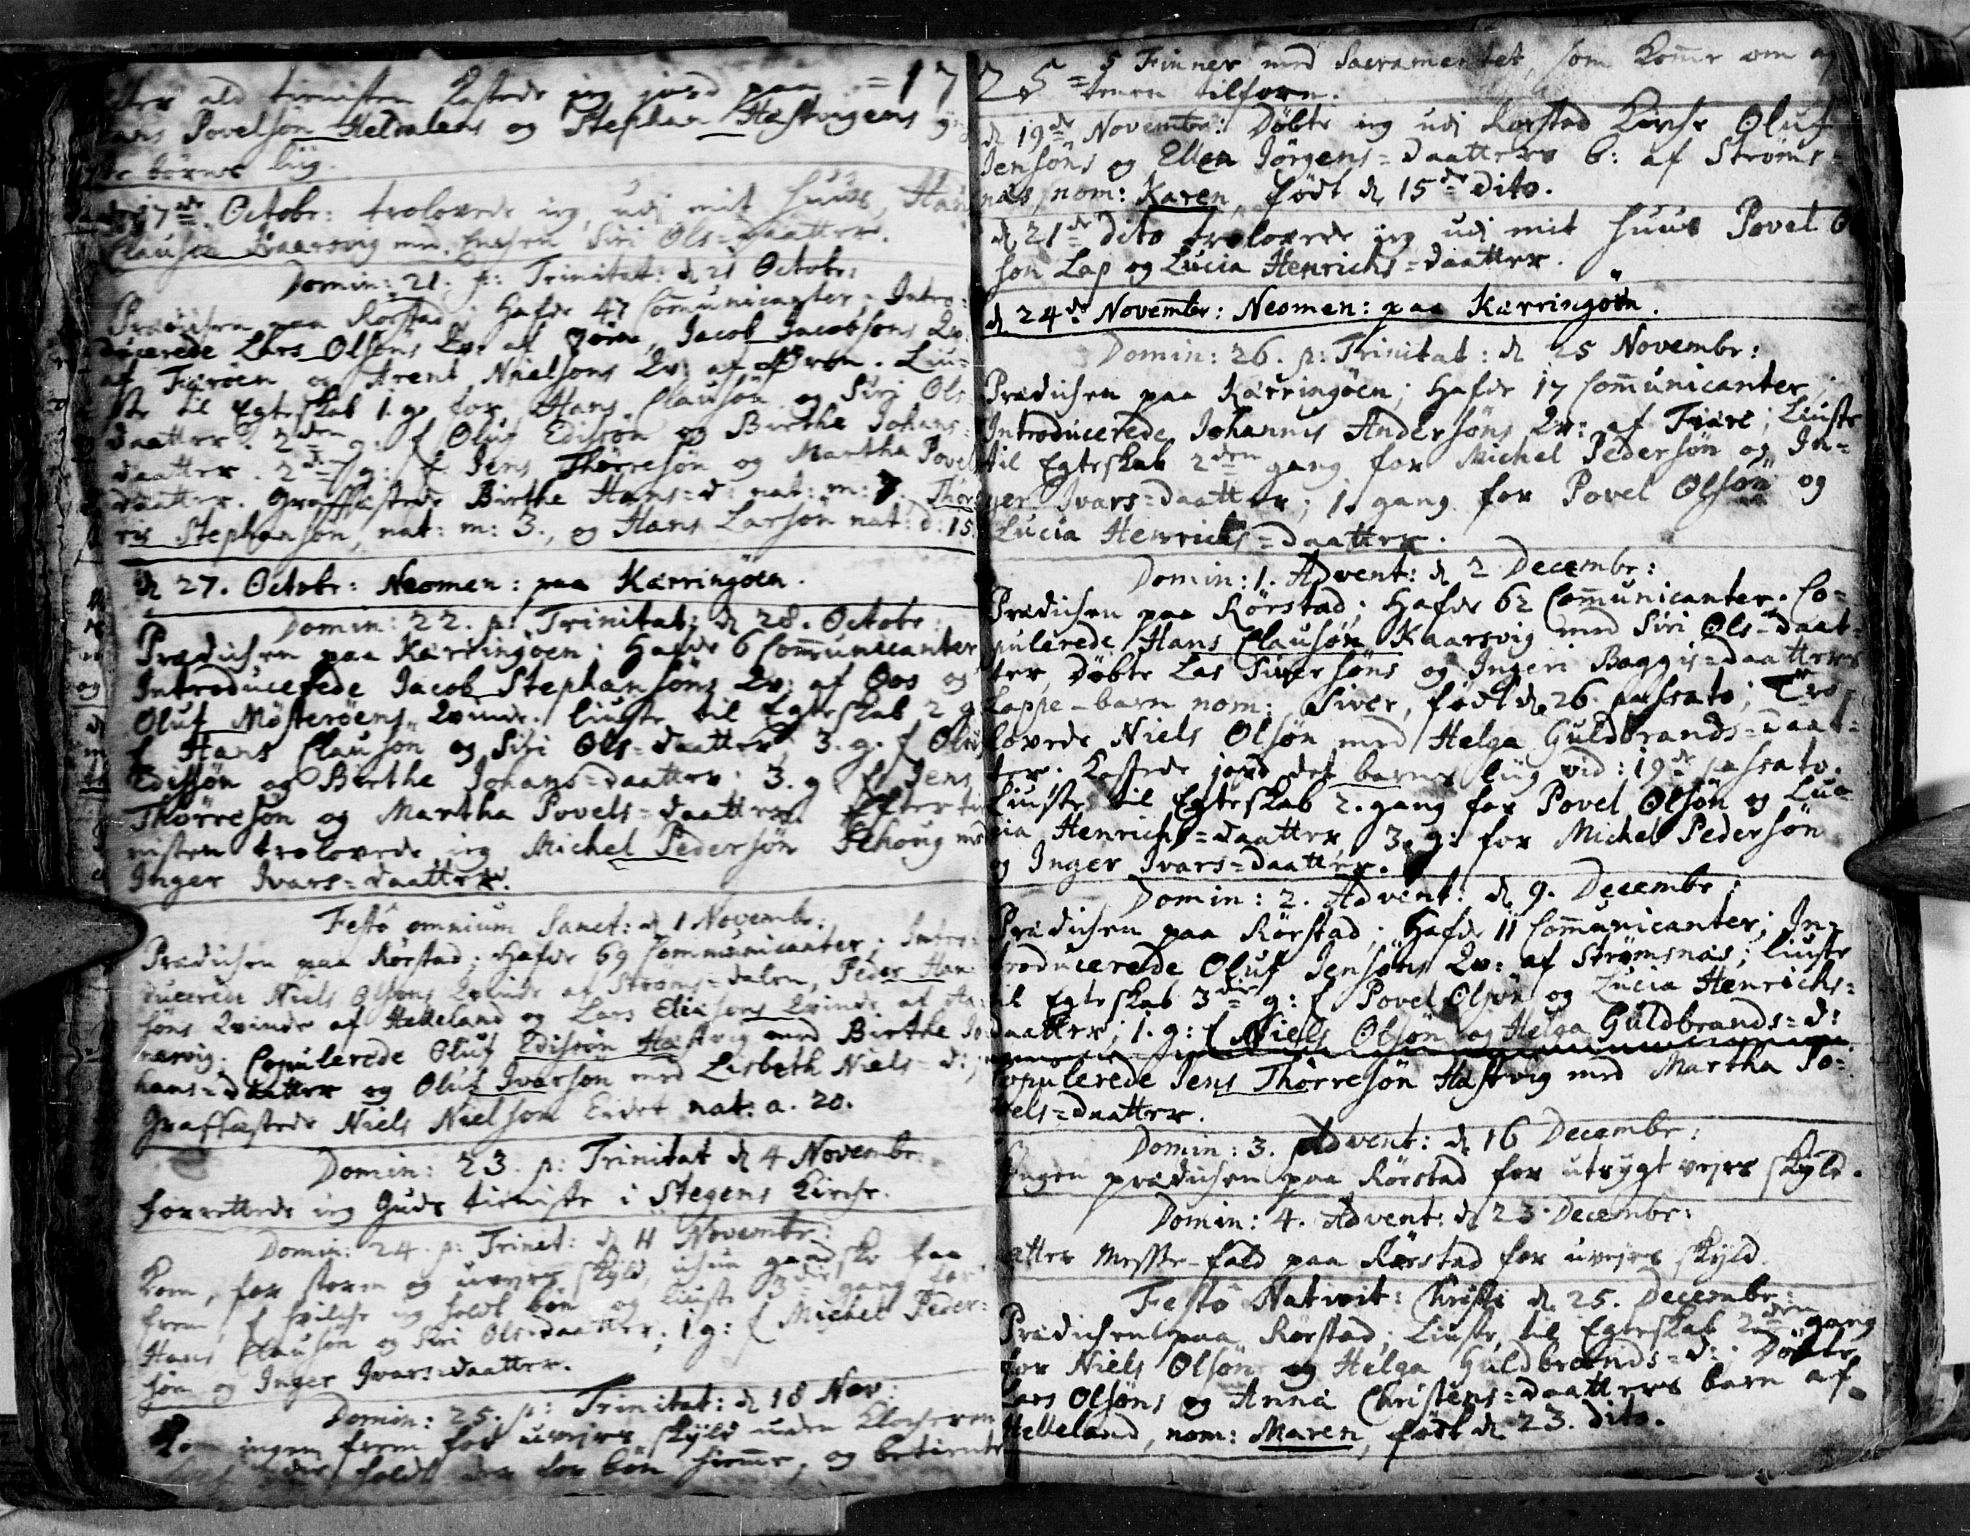 efter ald tienisten kastede jeg jord paa = 17
Lars Povelsøn Heldalens og Stephan Hestvigens
børns liig.
d. 17de Octobr: trolovede jeg, udj mit huus, Hans
Clausøn Kaarsvig med Siri Ols=daatter.
Domin: 21. p: Trinitat: d 21 Octobr:
Prædichen paa Rørstad; Hafde 47 Communicanter; Intro:
ducerede Lars Olsøns Qv: af Jacob Jacobsøns Qv:
af Færøen og Arent Nielsøns Qv: af Liu=
ste til Egteskab 1. g. for Hans Clausøn og Siri Ols
daatter. 2den g: f Oluf Edissøn og Birthe Johans=
daatter. 2den g: f Jens Thørresøn og Martha Povels
daatter. Graffæstede Birthe Hans=d: nat: m: 7. Thør
ris Stephansøn, nat: m: 3., og Hans Larsøn nat: d: 15.
d 27. Octobr: Neomen: paa Kærringøen.
Domin: 22. p: Trinitat: d 28. Octobr:
Prædichen paa Kærringøen; Hafde 6 Communicanter
Introducerede Jacob Stephansøns Qv: af Oos og
Oluf Møsterøens Qvinde. liuste til Egteskab 2 g
f Hans Clausøn og Siri Ols=daatter; 3. g. f Oluf
Edissøn og Birthe Johans=daatter; 3. g f Jens
Thørresøn og Martha Povels=daatter. Efter tie
nisten trolovede jeg Michel Pedersøn Fehoug med
Inger Ivars=daatter.
Festo omnium Sanct: d 1 Novembr:
Prædichen paa Rørstad; Hafde 69 Communicanter; Intro=
ducerede Niels Olsøns Qvinde af Strøms=dalen, Peder Han
søns Qvinde af Helleland og Lars Eliæsøns Qvinde af
nærvig. Copulerede Oluf Edissøn Hæstvig med Birthe Jo
hans=daatter og Oluf Ivarsøn med Lisbeth Niels=d:;
Graffæstede Niels Nielsøn Eidet nat: a. 20.
Domin: 23. p: Trinitat d 4 Novembr:
forrettede jeg Guds tieniste i Stegens kirche.
Domin: 24. p: Trinit: d 11 Novembr:
kom, for storm og uveyrs skyld, gandske faa
frem, f hvilche jeg holdt bøn og liuste 3die gang for
Hans Clausøn og Siri Olsdaatter; 1 g: f Michel Peder=
søn og Inger Ivarsdaatter.
Domin: 25. p: Trinitat: d 18 Nov:
kom ingen frem for uvejrs skyld uden Klocheren
holdt der for bøn hiemme, og betiente
25= 5 Finner med Sacramentet, som kom om af
tenen tilforn.
d 19de Novembr: Døbte jeg udj Rørstad Kirche Oluf
Jensøns og Ellen Jørgens=daatters b: af Strøms=
næs, nom: Karen, født d 15de dito.
d 21de dito trolovede jeg udj mit huus Povel Ol
søn Lap og Lucia Henrichs=daatter.
d 24de Novembr: Neomen: paa Kærringøen.
Domin: 26. p: Trinitat: d 25 Novembr:
Prædichen paa Kærringøen; Hafde 17 Communicanter
Introducerede Johannis Andersøns Qv: af Fiære; Liuste
til Egteskab 2den gang for Michel Pedersøn og In=
ger Ivars=daatter; 1. gang for Povel Olsøn og
Lucia Henrichs=daatter.
Domin: 1. Advent: d 2 Decembr:
Prædichen paa Rørstad; Hafde 62 Communicanter. Co=
pulerede Hans Clausøn Kaarsvig med Siri Ols=daat=
ter, Døbte Las Siversøns og Ingeri Baggis=daatters
Lappe-barn nom: Siver, født d. 26 passato; Tro=
lovede Niels Olsøn med Helga Guldbrands=daat=
ter. Kastede jord det barns liig vid: 19de passato.
Liuste til Egteskab 2. gang for Povel Olsøn og Lu=
cia Henrichs=daatter, 3. g: for Michel Pedersøn
og Inger Ivars=daatter.
Domin: 2. Advent: d 9. Decembr:
Prædichen paa Rørstad; Hafde 11 Communicanter; In=
troducerede Oluf Jensøns Qv: af Strømsnæs; liuste
til Egteskab 3die g: f Povel Olsøn og Lucia Henrichs=
daatter; 1. g: f Niels Olsøn og Helga Guldbrands=d:
Copulerede Jens Thørresøn Hæstvig med Martha Po=
vels=daatter.
Domin: 3. Advent: d 16 Decembr:
Ingen prædichen paa Rørstad for utrygt vejrs skyld.
Domin: 4. Advent: d 23 Decembr:
atter Messe-fald paa Rørstad for uvejrs skyld.
Festo Nativit: Christi d 25. Decembr:
Prædichen paa Rørstad; Liuste til Egteskab 2den gang
for Niels Olsøn og Helga Guldbrands=d:; Døbte
Lars Olsøns og Anna Christens=daatters barn af
Helleland, nom: Maren, født d 23. dito.